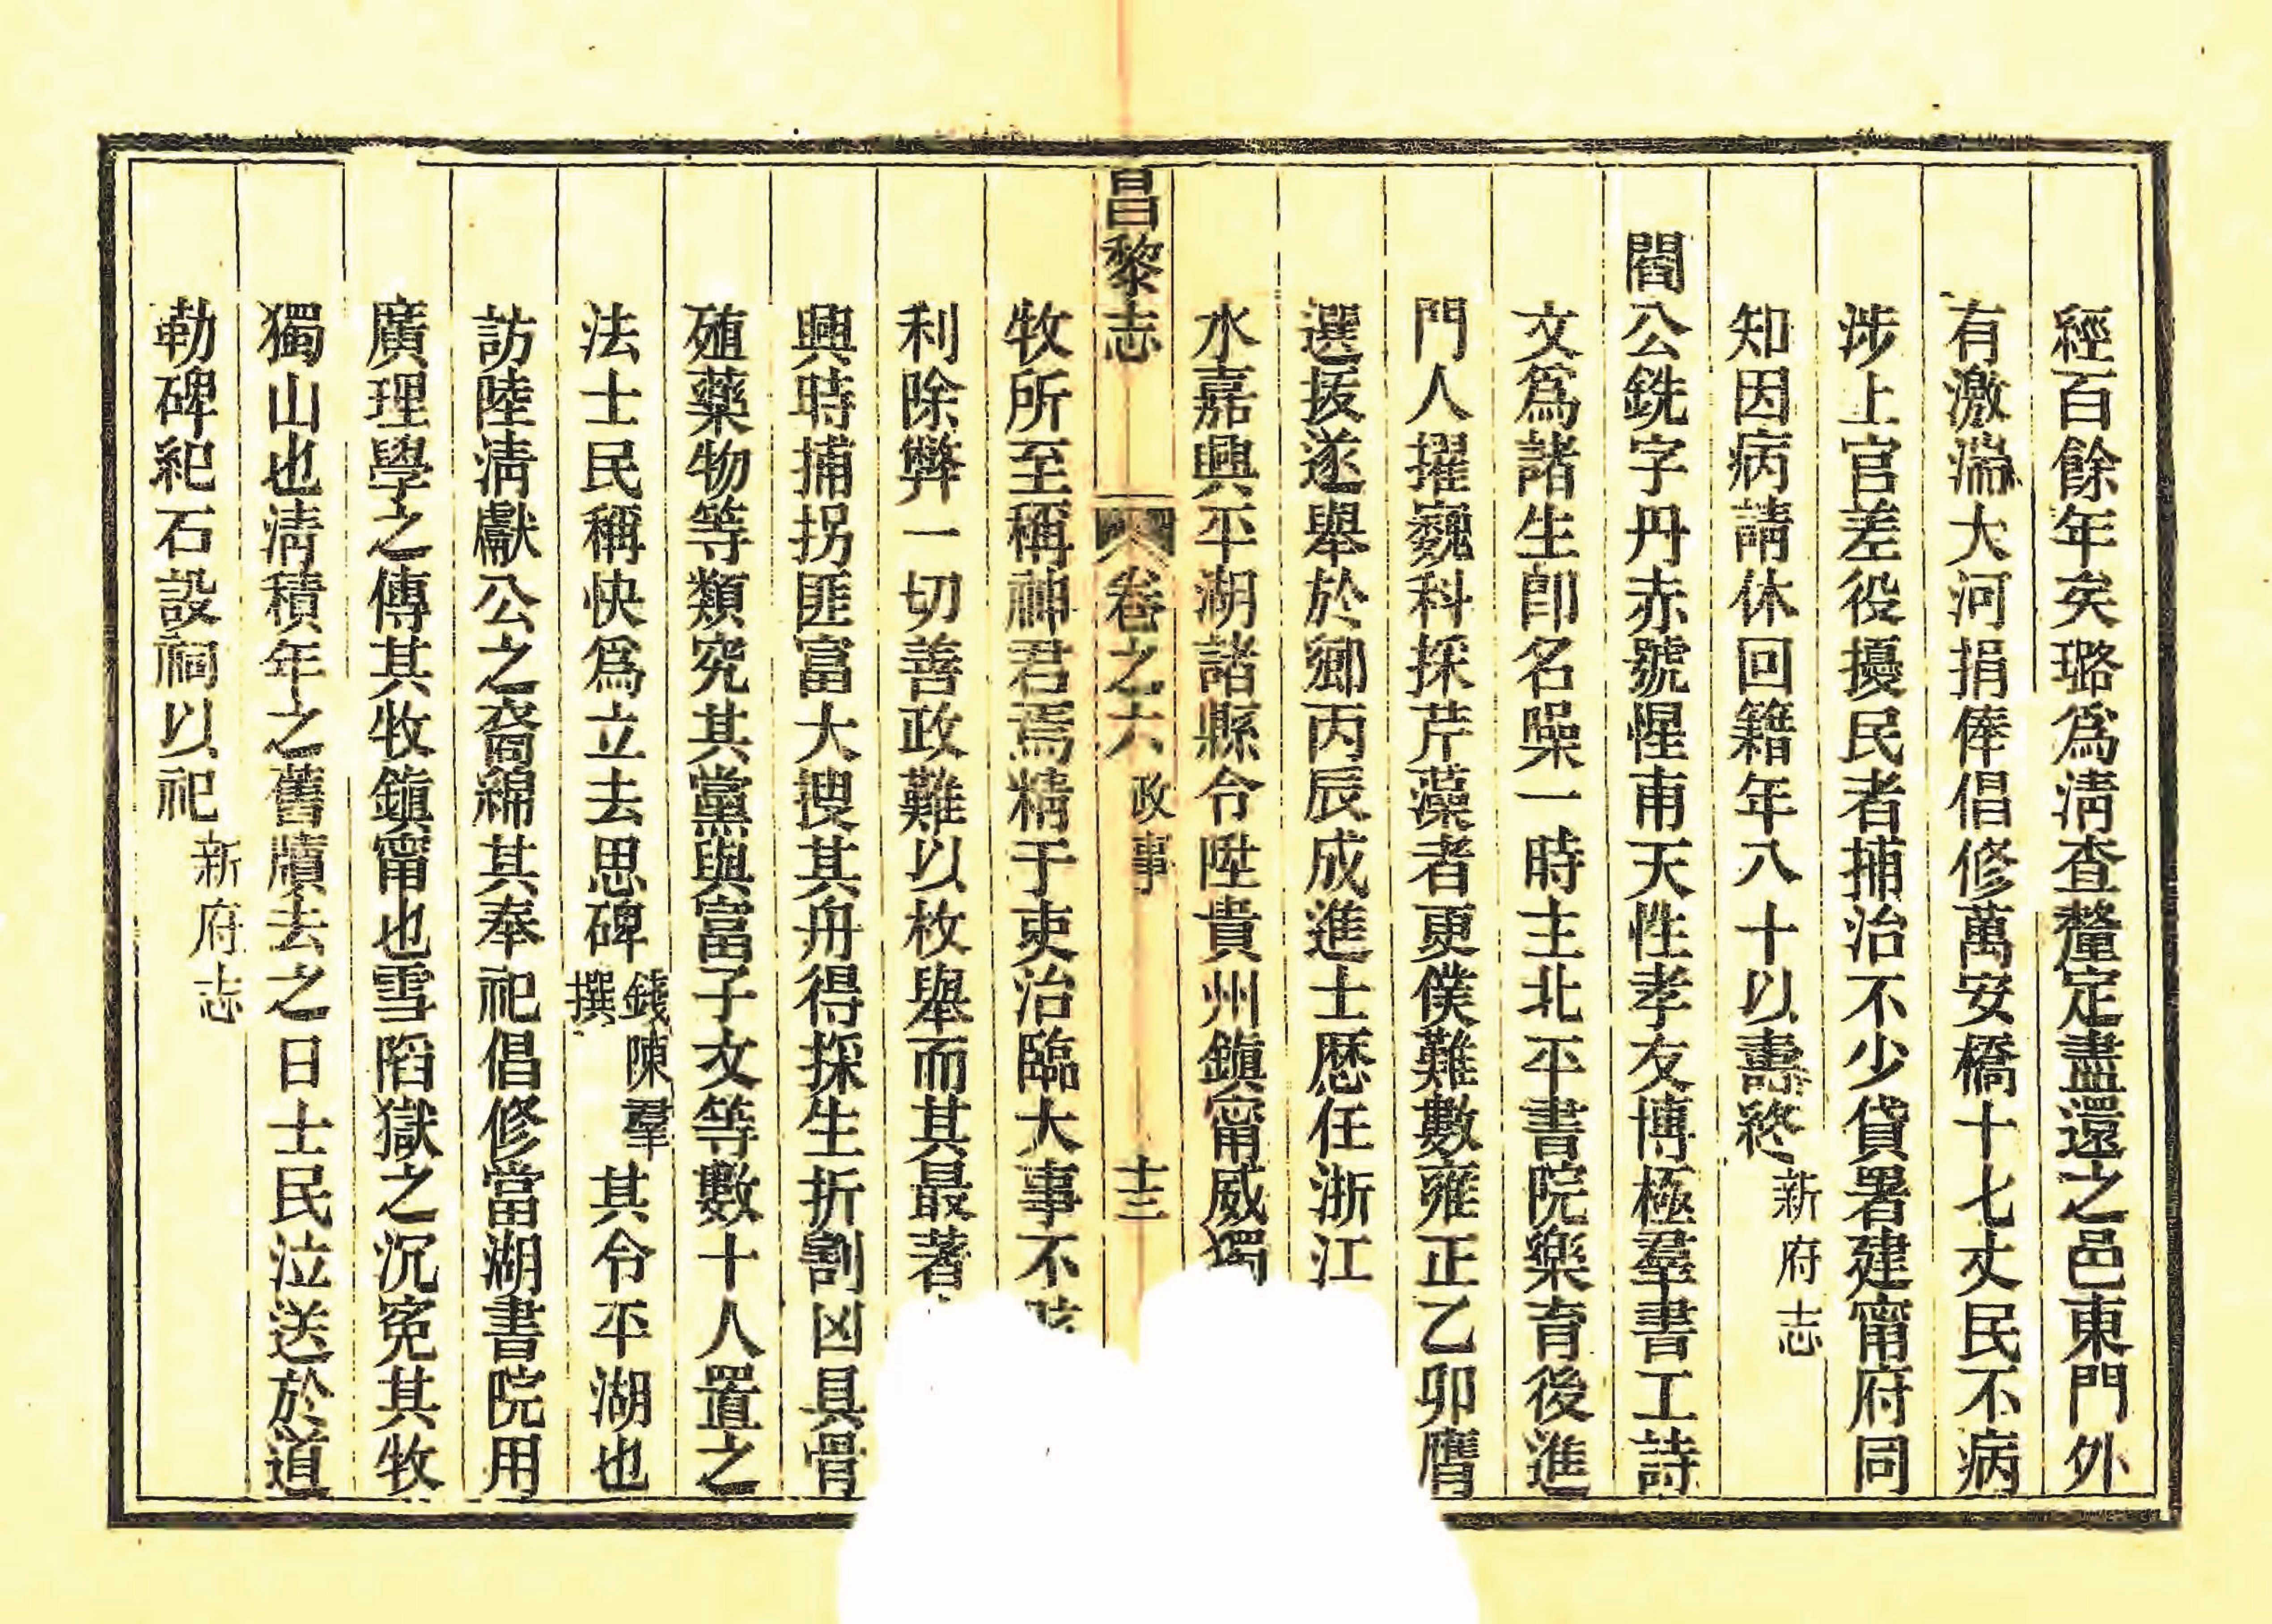 經百餘年矣璐爲淸查釐定盡還之邑東門外
有激湍大河捐俸倡修萬安橋十七丈民不病
涉上官差役擾民者捕治不少貸署建甯府同
知因病請休回籍年八十以壽終新府志
閻公銑字丹赤號惺甫天性孝友博極羣書工詩
文爲諸生卽名噪一時主北平書院樂育後進
門人擢巍科採芹藻者更僕難數雍正乙卯膺
選拔遂舉於鄕丙辰成進士歷任浙江
水嘉興平湖諸縣令陞貴州鎭甯威獨
昌黎志 卷之六 政事 十三
牧所至稱神君焉精于吏治臨大事不
利除弊一切善政難以枚舉而其最著
興時捕拐匪富大搜其舟得採生折割凶具骨
殖藥物等類究其黨與富子文等數十人置之
法士民稱快爲立去思碑錢陳羣撰其令平湖也
訪陸淸獻公之裔綿其奉祀倡修當湖書院用
廣理學之傳其牧鎭甯也雪滔獄之沉寃其牧
獨山也淸積年之舊牘去之日士民泣送於道
勒碑紀石設祠以祀新府志